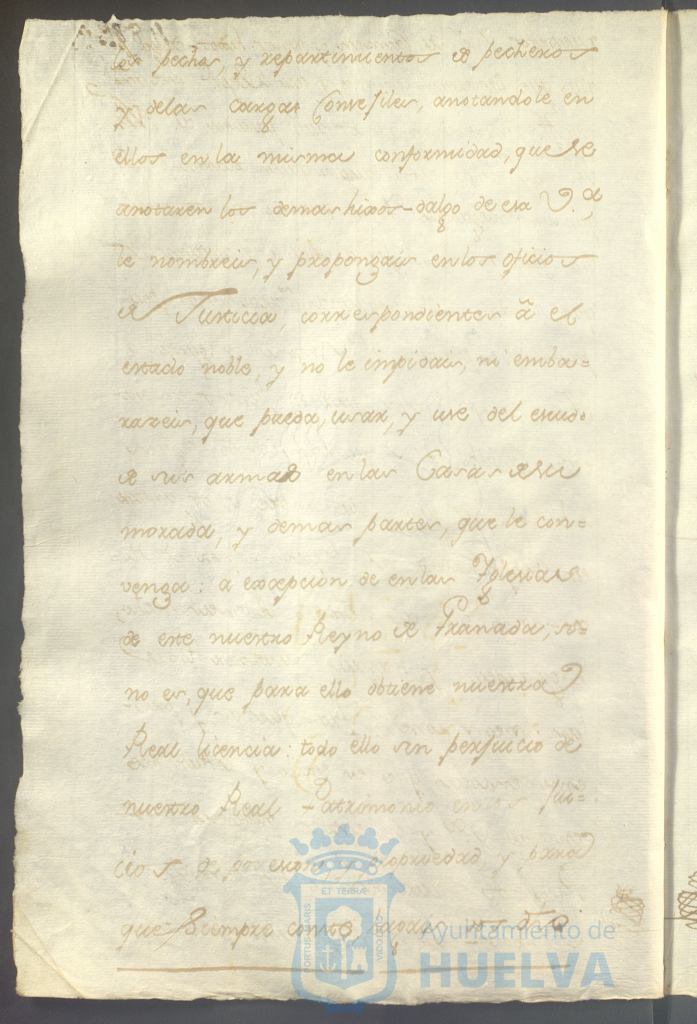 los pechos, y repartimientos de pecheros
y de las cargas Consejiles, anotandole en
ellos en la misma conformidad, que se
anotaren los demas hixos-dalgo de esa V.ª,
le nombreis, y propongais en los oficios
de Justicia, correspondientes â el
estado noble, y no le impidais, ni emba=
razeis, que pueda, usar, y use del escudo
de sus armas en las Casas de su
morada, y demas partes, que le con=
venga: a excepción de en las Iglesias
de este nuestro Reyno de Granada, si
no es, que para ello obtiene nuestra
Real licencia: todo ello sin perjuicio de
nuestro Real Patrimonio en los jui=
cios de posesion y propiedad, y para
que siempre conste
PORTUS MARIS
ET TERRÆ
CUSTODIA
Ayuntamiento de
HUELVA